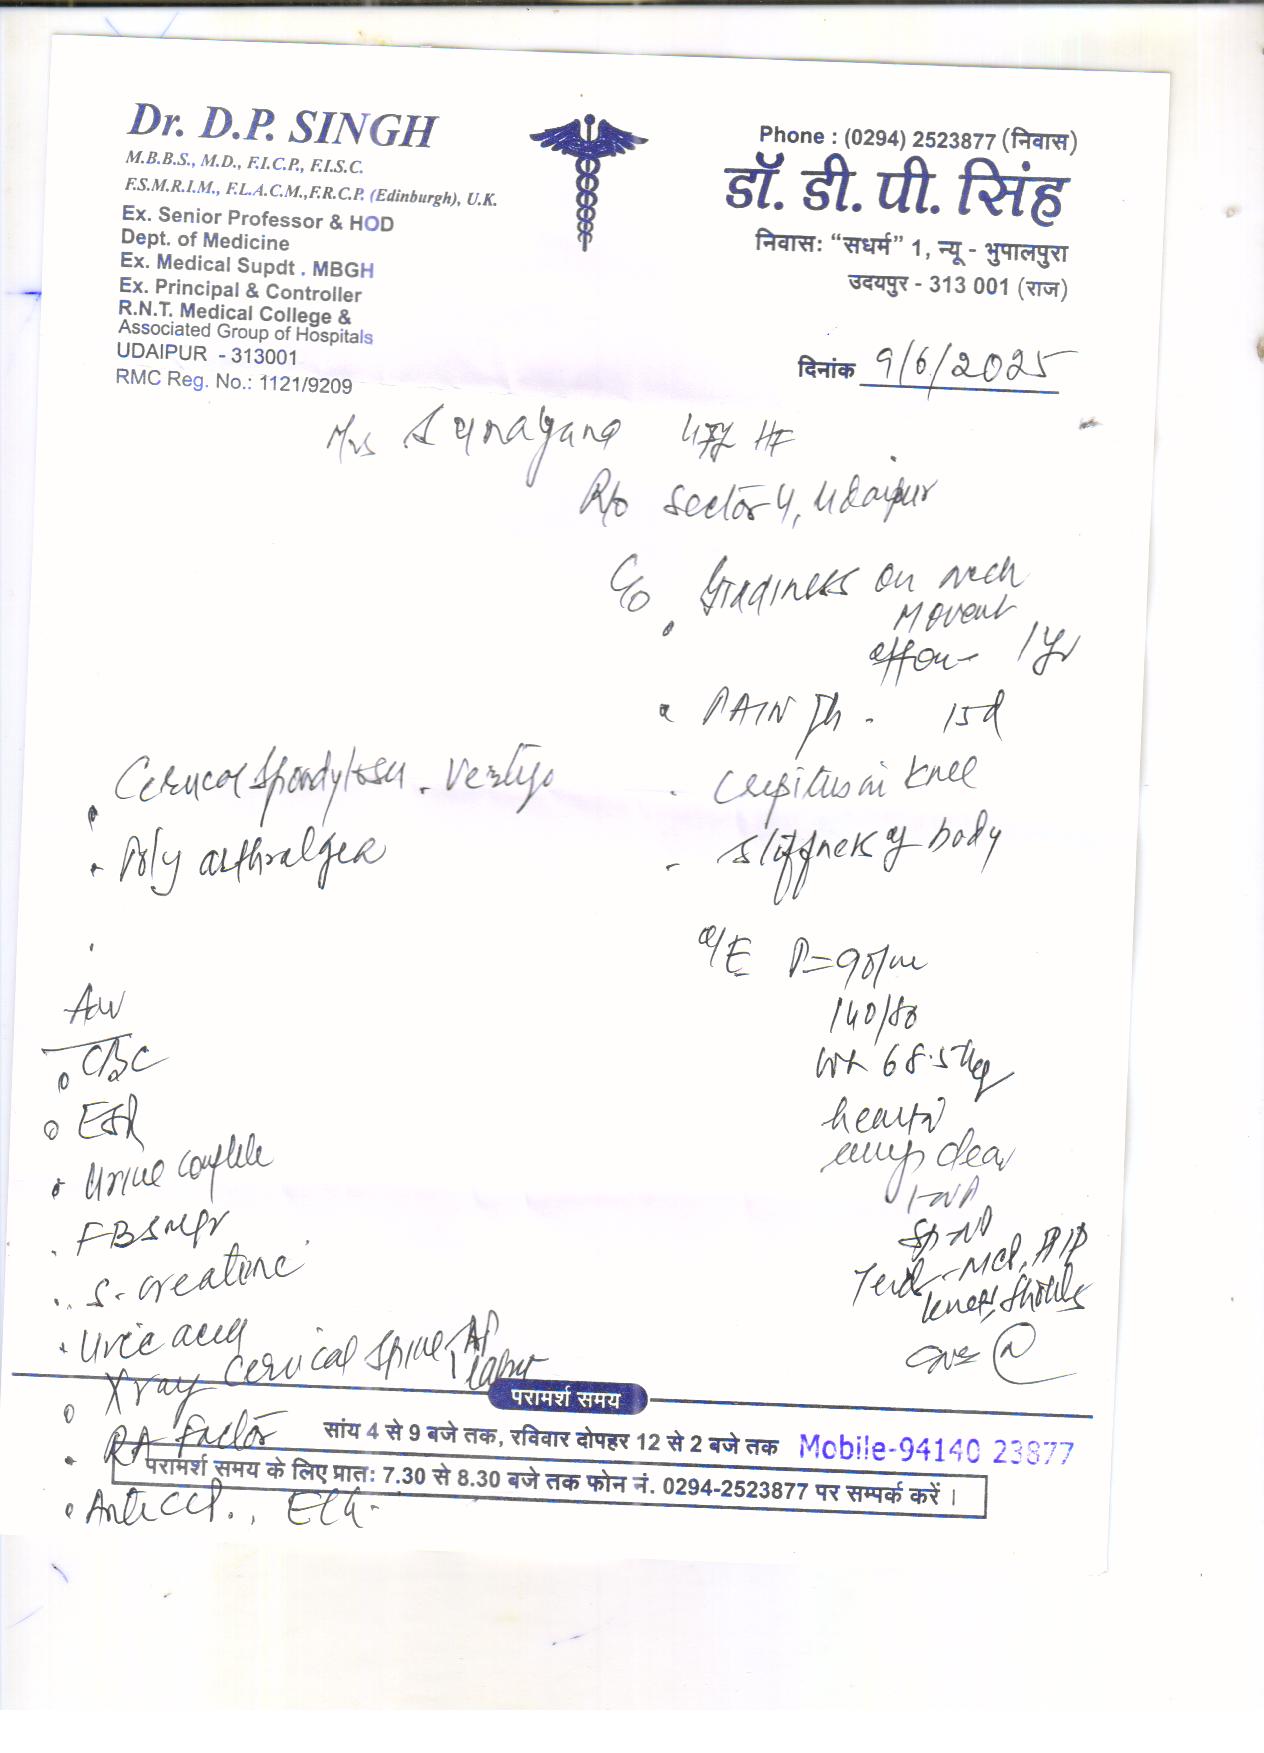 Dr. D.P. SINGH
M.B.B.S., M.D., F.I.C.P., F.I.S.C.
F.S.M.R.I.M., F.L.A.C.M.,F.R.C.P. (Edinburgh), U.K.
Ex. Senior Professor & HOD
Dept. of Medicine
Ex. Medical Supdt . MBGH
Ex. Principal & Controller
R.N.T. Medical College &
Associated Group of Hospitals
UDAIPUR - 313001
RMC Reg. No.: 1121/9209
Phone : (0294) 2523877 (निवास)
डॉ. डी. पी. सिंह
निवास: “सधर्म” 1, न्यू - भुपालपुरा
उदयपुर - 313 001 (राज)
दिनांक 9/6/2025
Mrs Sunayana
R/o Sector 4, Udaipur
C/o Giddiness on neck
Movent
1 yr
PAIN 15d
crepitus in knee
stiffness of body
Cervical Spondylosis . Vertigo
Poly arthralgea
O/E P=90/m
140/80
Wt 68.5 kg
heart N
clear
MCP, PIP
knees, Shoulds
CNS N
CBC
ESR
Urine complete
FBS
S. creatine
Uric acid
X ray cervical spine AP
RA Factor
Anti CCP. , ECG
परामर्श समय
सांय 4 से 9 बजे तक, रविवार दोपहर 12 से 2 बजे तक Mobile-94140 23877
परामर्श समय के लिए प्रात: 7.30 से 8.30 बजे तक फोन नं. 0294-2523877 पर सम्पर्क करें ।